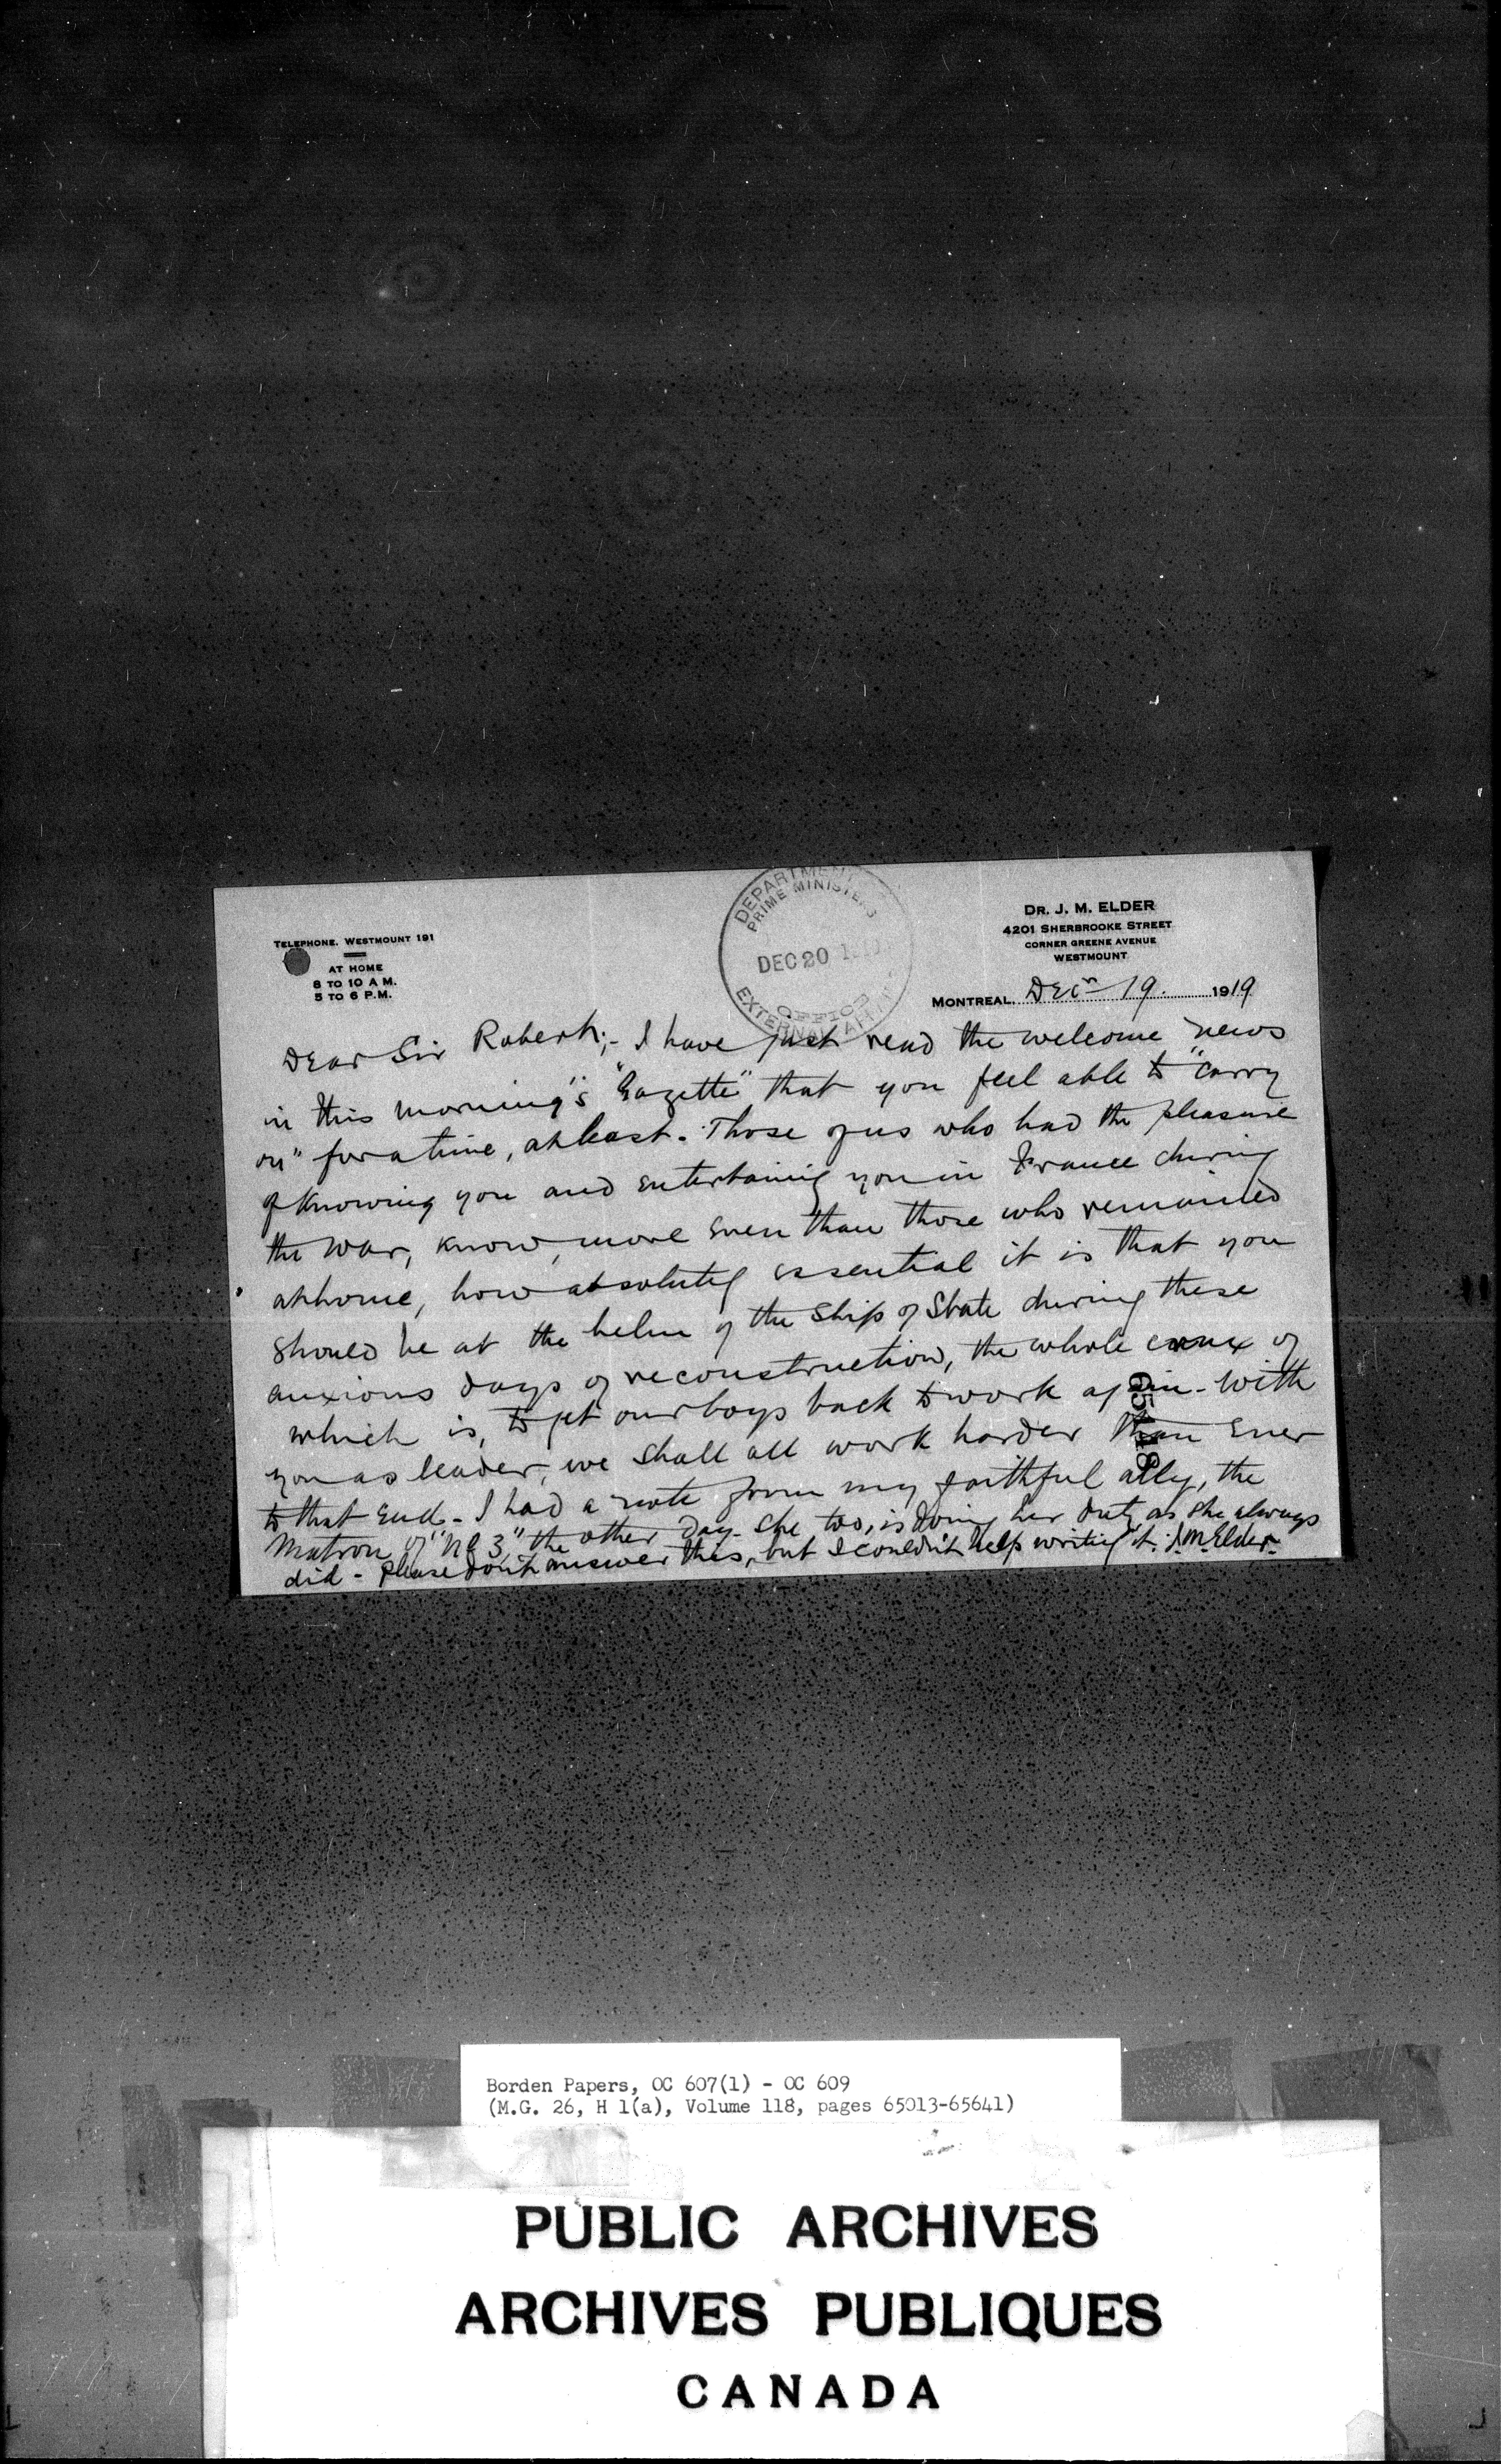 TELEPHONE. WESTMOUNT 191
AT HOME
8 TO 10 A M.
5 TO 6 P.M.
DEPARTMENT
PRIME MINISTERS
DEC 20
OFFICE
EXTERNAL AFFAI
DR. J. M. ELDER
4201 SHERBROOKE STREET
CORNER GREENE AVENUE
WESTMOUNT
MONTREAL. Decr 19. 1919
Dear Sir Robert;- I have just read the welcome news
in this morning's "Gazette" that you feel able to "carry
on" for a time, at least. Those of us who had the pleasure
of knowing you and entertaining you in France during
the war, know, more even than those who remained
at home, how absolutely essential it is that you
should be at the helm of the Ship of State during these
anxious days of reconstruction, the whole crux of
which is, to get our boys back to work again - With
you as leader, we shall all work harder than ever
to that end - I had a note from my faithful ally, the
Matron of "No 3" the other day - She too, is doing her duty as she always
did - Please don't answer this, but I couldn't help writing it. J.M. Elder
Borden Papers, OC 607(1) - OC 609
(M.G. 26, H 1(a), Volume 118, pages 65013-65641)
PUBLIC ARCHIVES
ARCHIVES PUBLIQUES
CANADA